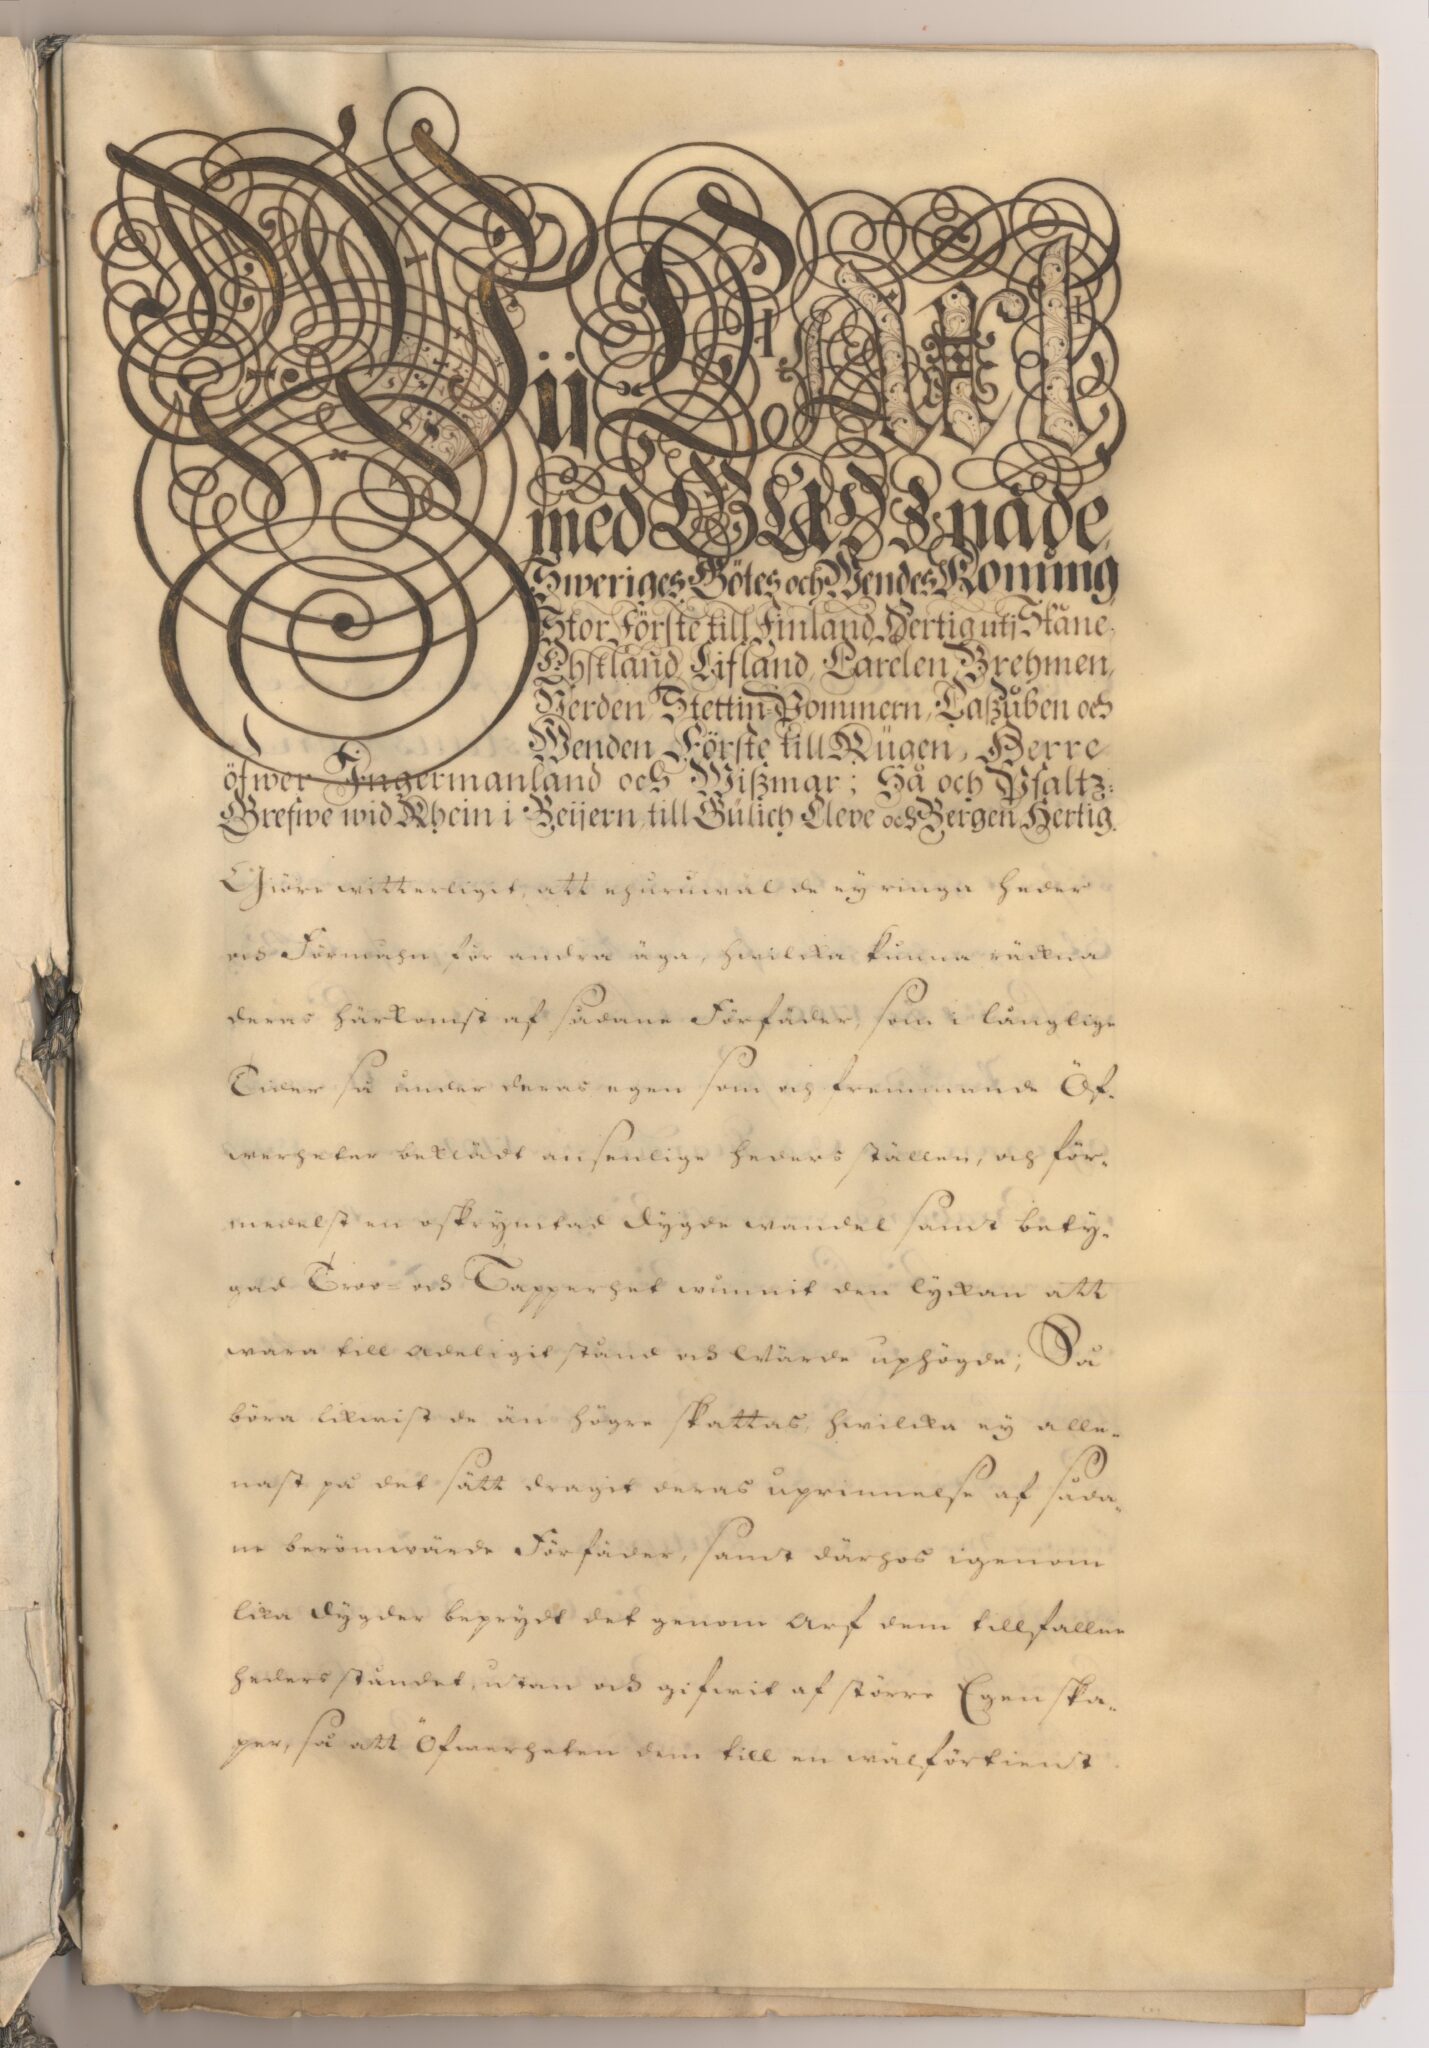 Wii Carl
med Gudz nåde,
Sweriges, Götes och Wendes Konung
Stor Förste till Finland, Hertig utj Skåne,
Ehstland, Lifland, Carelen, Brehmen,
Verden, Stettin-Pommern, Caßuben och
Wenden, Förste till Rügen, Herre
öfwer Ingermanland och Wißmar; Så och Pfaltz-
Grefwe wid Rhein i Beijern, till Gülich Cleve och Bergen Hertig.
Giöre witterligit, att ehuruwäl de ey ringa heder
och Förmohn för andra äga, hwilcka kunna räckna
deras härkomst af sådane Förfäder, som i långlige
Tider så under deras egen som och fremmande Öf-
werheter beklädt ansenlige heders ställen, och för-
medelst en oskrymtad dygdewandel samt bety-
gad Troo- och Tapperhet wunnit den lyckan att
wara till adeligit stånd och Wärde uphögde; Så
böra likwist de än högre skattas, hwilcka ey alle-
nast på det sätt dragit deras uprinnelse af såda-
ne berömwärde Förfäder, samt därhos igenom
lika dygder beprydt det genom arf dem tillfallne
heders ståndet, utan och gifwit af större Egenska-
per, så att Öfwerheten dem till en wälförtient